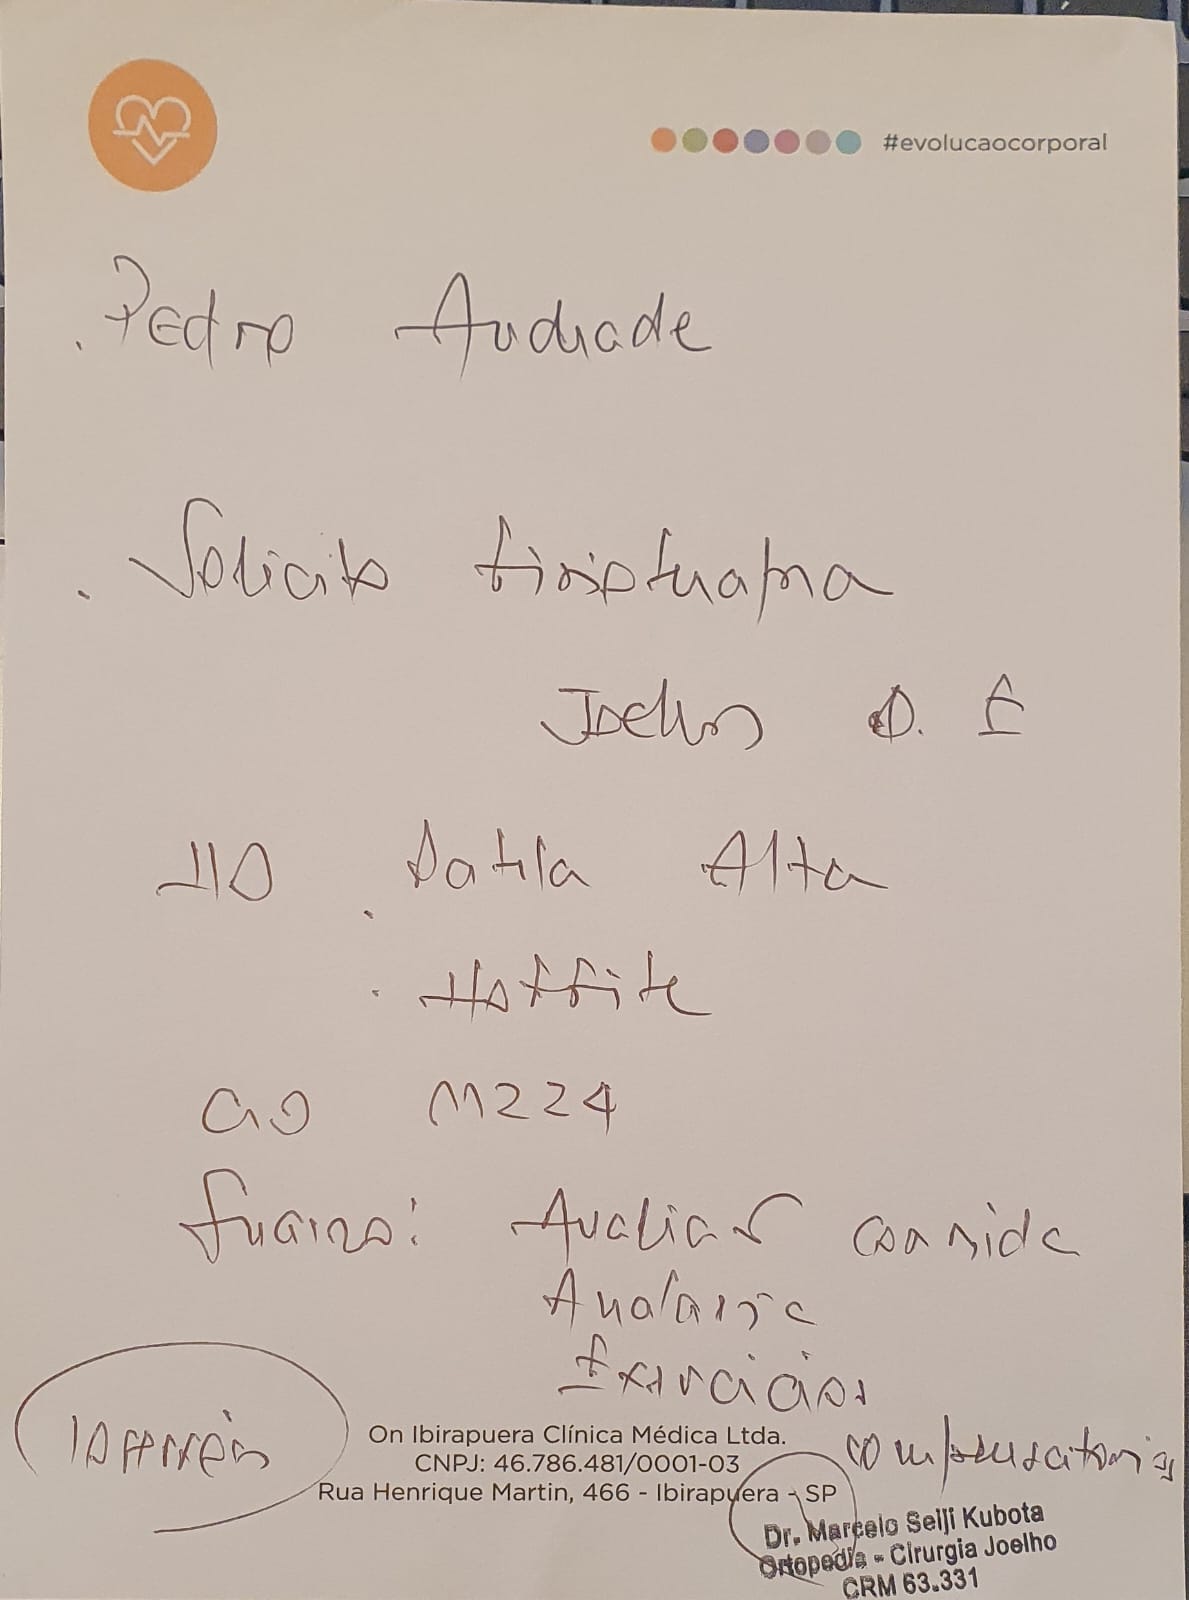 #evolucaocorporal
. Pedro Andrade
. Solicito fisioterapia
Joelho D. E
HD . Patela Alta
. Hoffite
CID M224
Avaliar corrida
Analgesia
Exercicios
compensatorios
10 sessões
On Ibirapuera Clínica Médica Ltda.
CNPJ: 46.786.481/0001-03
Rua Henrique Martin, 466 - Ibirapuera - SP
Dr. Marcelo Seiji Kubota
Ortopedia - Cirurgia Joelho
CRM 63.331